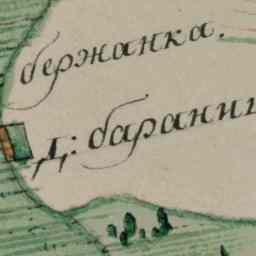 бержанка.
Д: барани